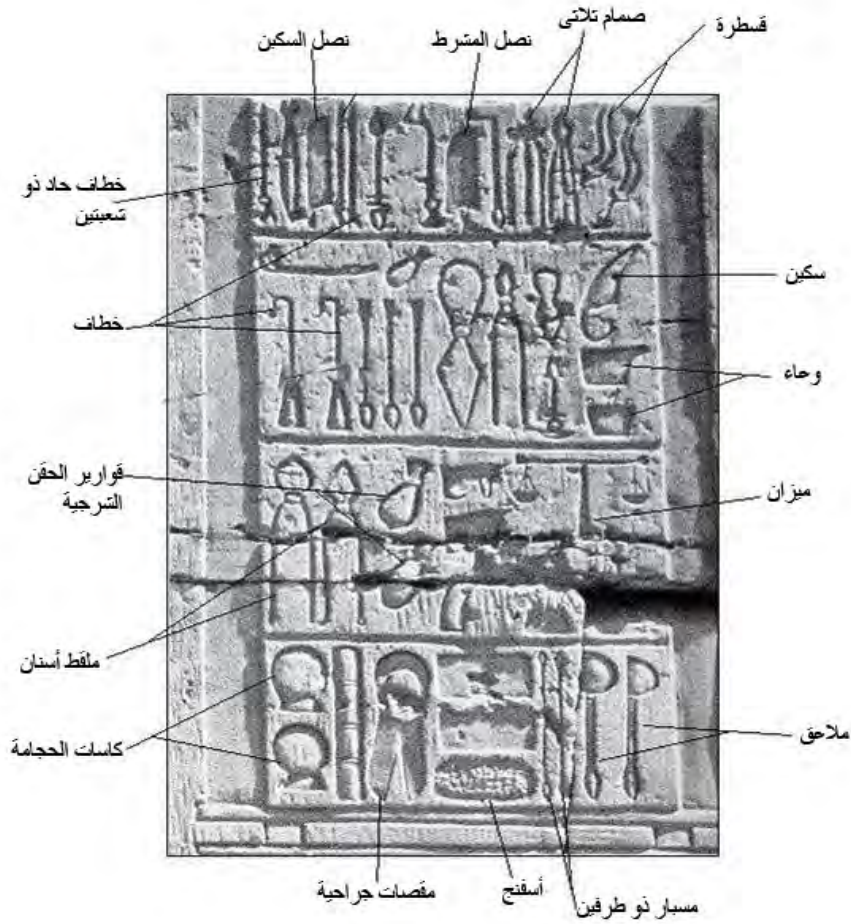 قسطرة
صمام تلاتى
نصل المشرط
نصل السكين
خطاف حاد ذو
شعبتين
سكين
خطاف
وحاء
قوارير الحقن
الشرجية
ميزان
ملقط أسنان
ملاحق
كاسات الحجامة
مقصات جراحية
أسفنج
مسبار ذو طرفين